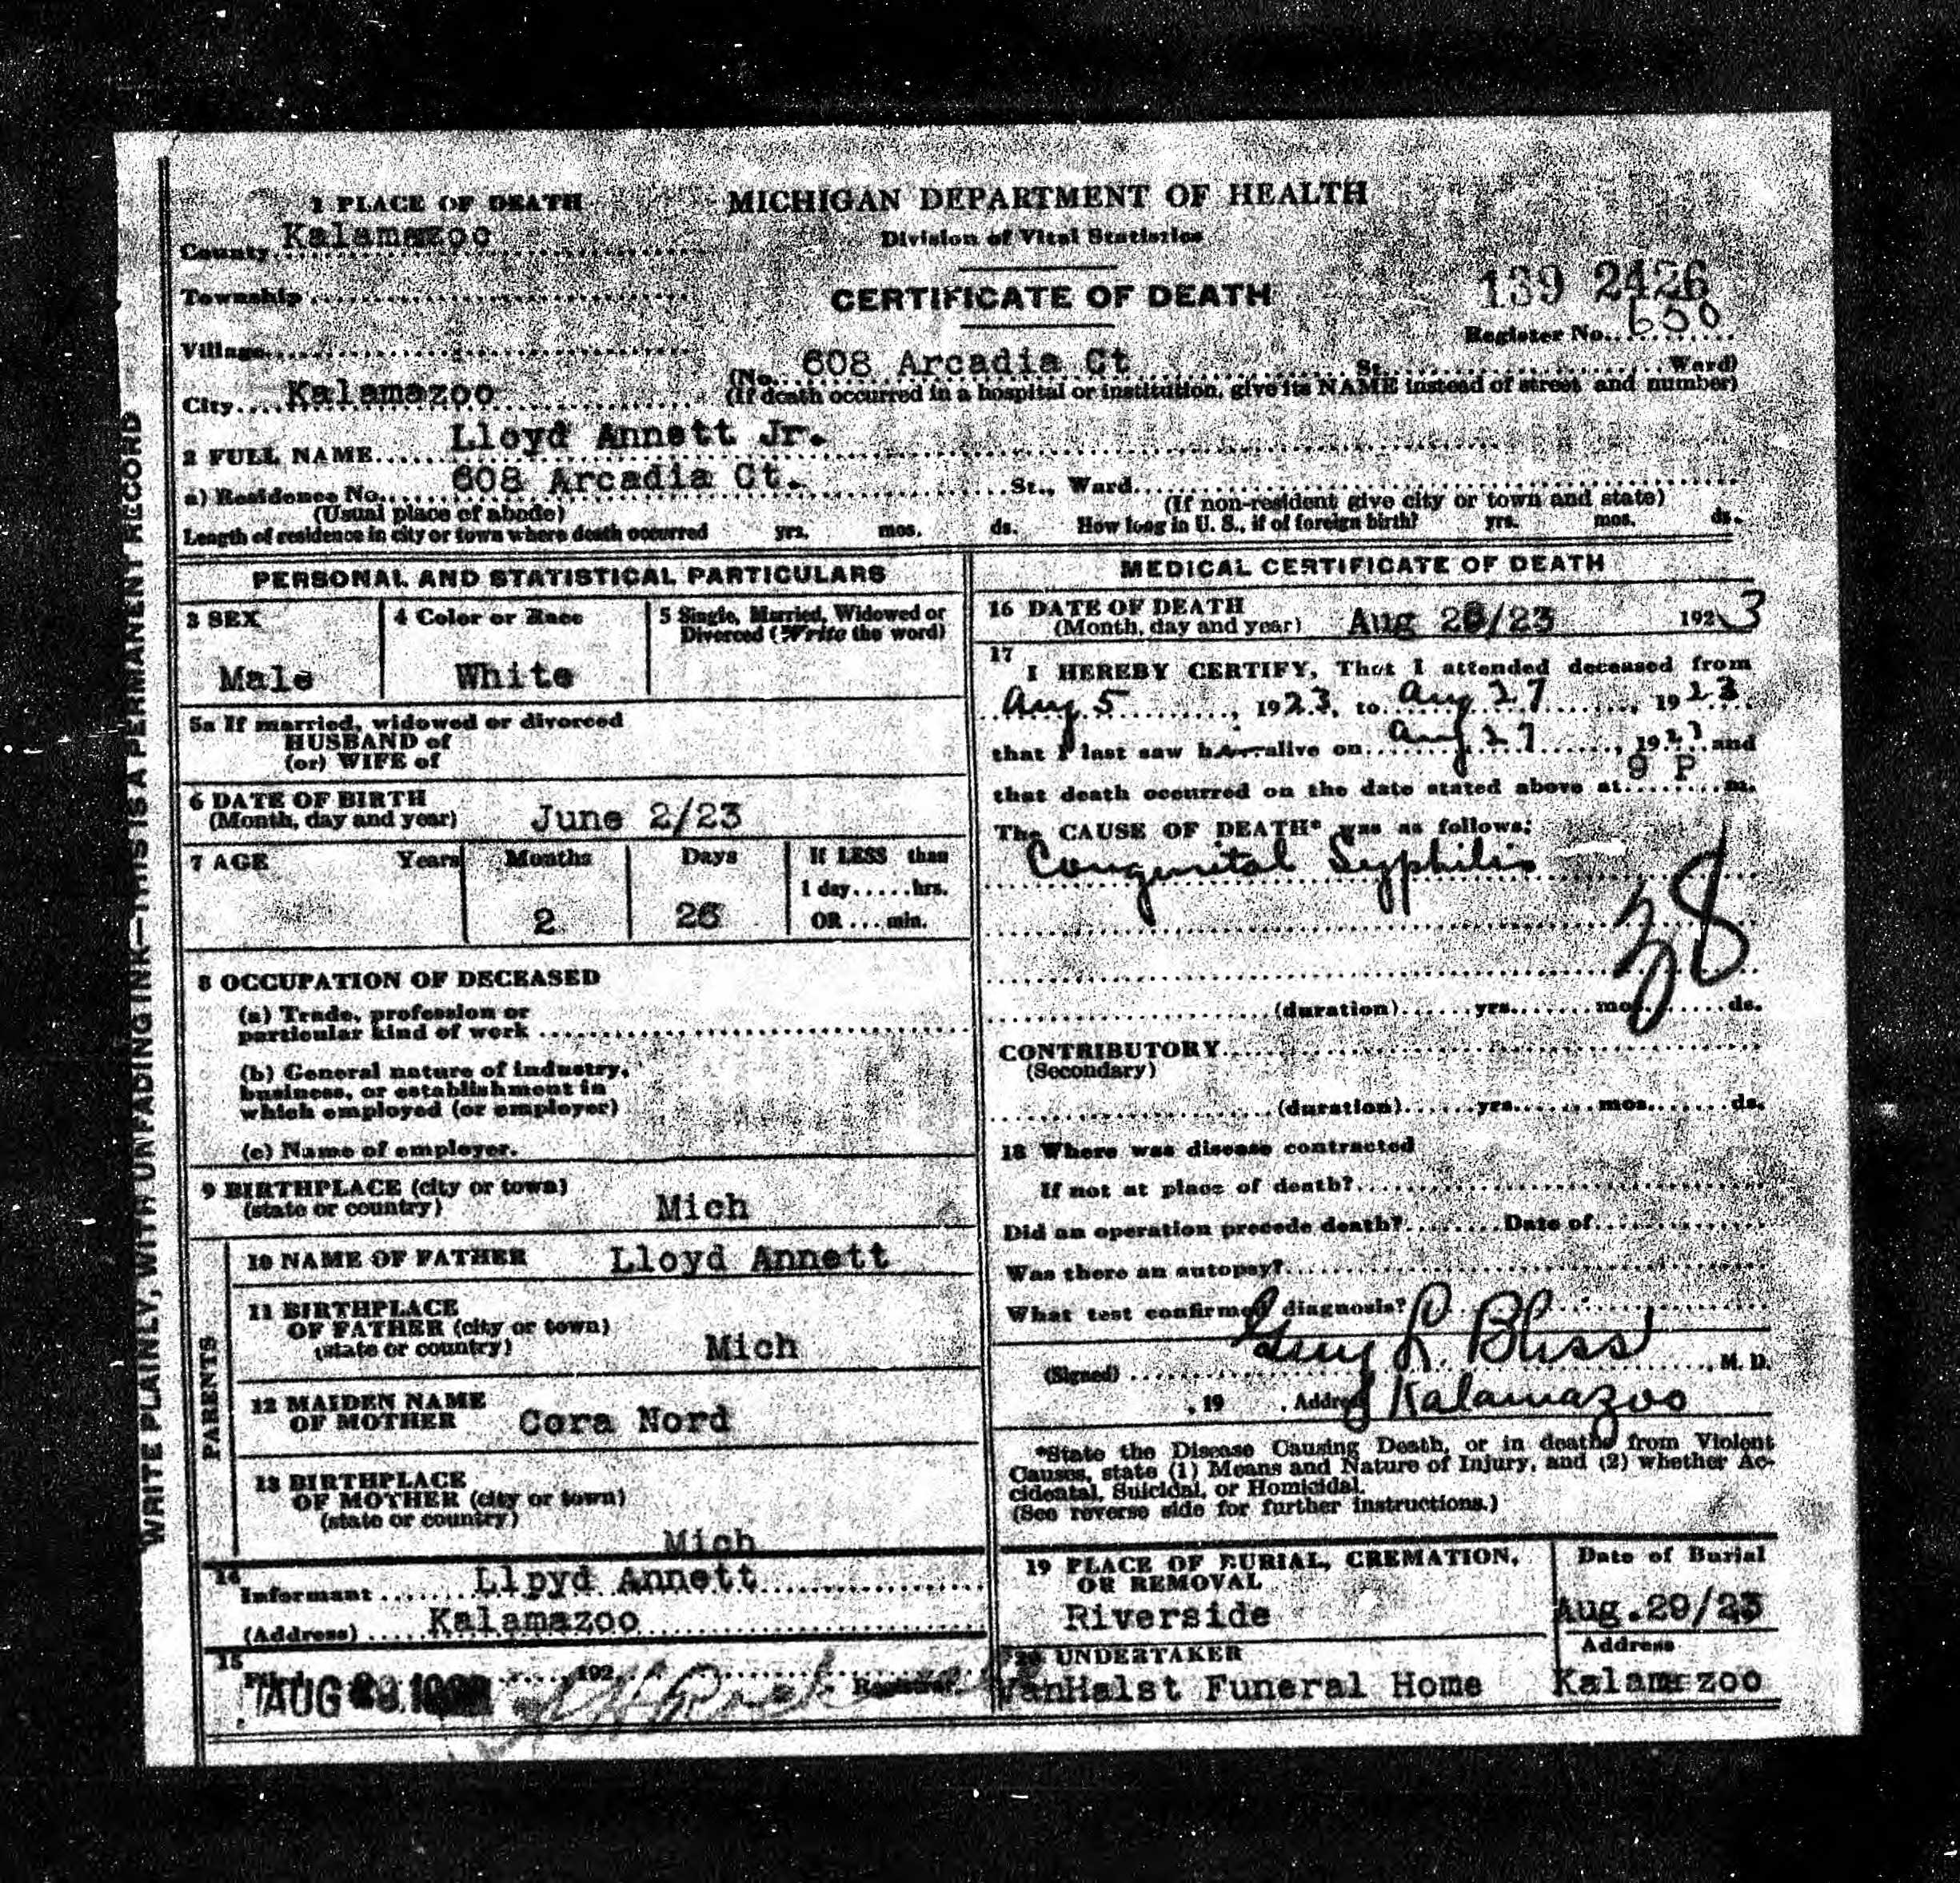 1 PLACE OF DEATH
MICHIGAN DEPARTMENT OF HEALTH
Division of Vital Statistics
County Kalamazoo
Township
CERTIFICATE OF DEATH
139 2426
Register No.
Village
City Kalamazoo
(No. 608 Arcadia Ct St. Ward)
(If death occurred in a hospital or institution, give its NAME instead of street and number)
2 FULL NAME Lloyd Annett Jr.
a) Residence No. 608 Arcadia Ct. St., Ward
(Usual place of abode)
(If non-resident give city or town and state)
Length of residence in city or town where death occurred yrs. mos. ds. How long in U. S., if of foreign birth? yrs. mos. ds.
WRITE PLAINLY, WITH UNFADING INK—THIS IS A PERMANENT RECORD
PERSONAL AND STATISTICAL PARTICULARS
3 SEX
Male
4 Color or Race
White
5 Single, Married, Widowed or
Divorced (Write the word)
5a If married, widowed or divorced
HUSBAND of
(or) WIFE of
6 DATE OF BIRTH
(Month, day and year) June 2/23
7 AGE Years Months Days If LESS than
1 day.....hrs.
2 26 OR...min.
8 OCCUPATION OF DECEASED
(a) Trade, profession or
particular kind of work
(b) General nature of industry,
business, or establishment in
which employed (or employer)
(c) Name of employer.
9 BIRTHPLACE (city or town)
(state or country) Mich
PARENTS
10 NAME OF FATHER Lloyd Annett
11 BIRTHPLACE
OF FATHER (city or town)
(state or country) Mich
12 MAIDEN NAME
OF MOTHER Cora Nord
13 BIRTHPLACE
OF MOTHER (city or town)
(state or country)
Mich
14
Informant Llpyd Annett
(Address) Kalamazoo
15
AUG 192 Registrar
MEDICAL CERTIFICATE OF DEATH
16 DATE OF DEATH
(Month, day and year) Aug 28/23 192 3
17
I HEREBY CERTIFY, That I attended deceased from
Aug 5, 1923, to Aug 27, 1923
that I last saw h alive on Aug 27, 1923 and
that death occurred on the date stated above at 9 P m.
The CAUSE OF DEATH* was as follows:
Congenital Syphilis
38
(duration) yrs. mos. ds.
CONTRIBUTORY
(Secondary)
(duration) yrs. mos. ds.
18 Where was disease contracted
If not at place of death?
Did an operation precede death? Date of
Was there an autopsy?
What test confirmed diagnosis?
(Signed) Guy L. Bliss, M. D.
, 19 . Address Kalamazoo
*State the Disease Causing Death, or in deaths from Violent
Causes, state (1) Means and Nature of Injury, and (2) whether Ac-
cidental, Suicidal, or Homicidal.
(See reverse side for further instructions.)
19 PLACE OF BURIAL, CREMATION,
OR REMOVAL
Riverside
Date of Burial
Aug.29/23
20 UNDERTAKER
VanHalst Funeral Home
Address
Kalamazoo